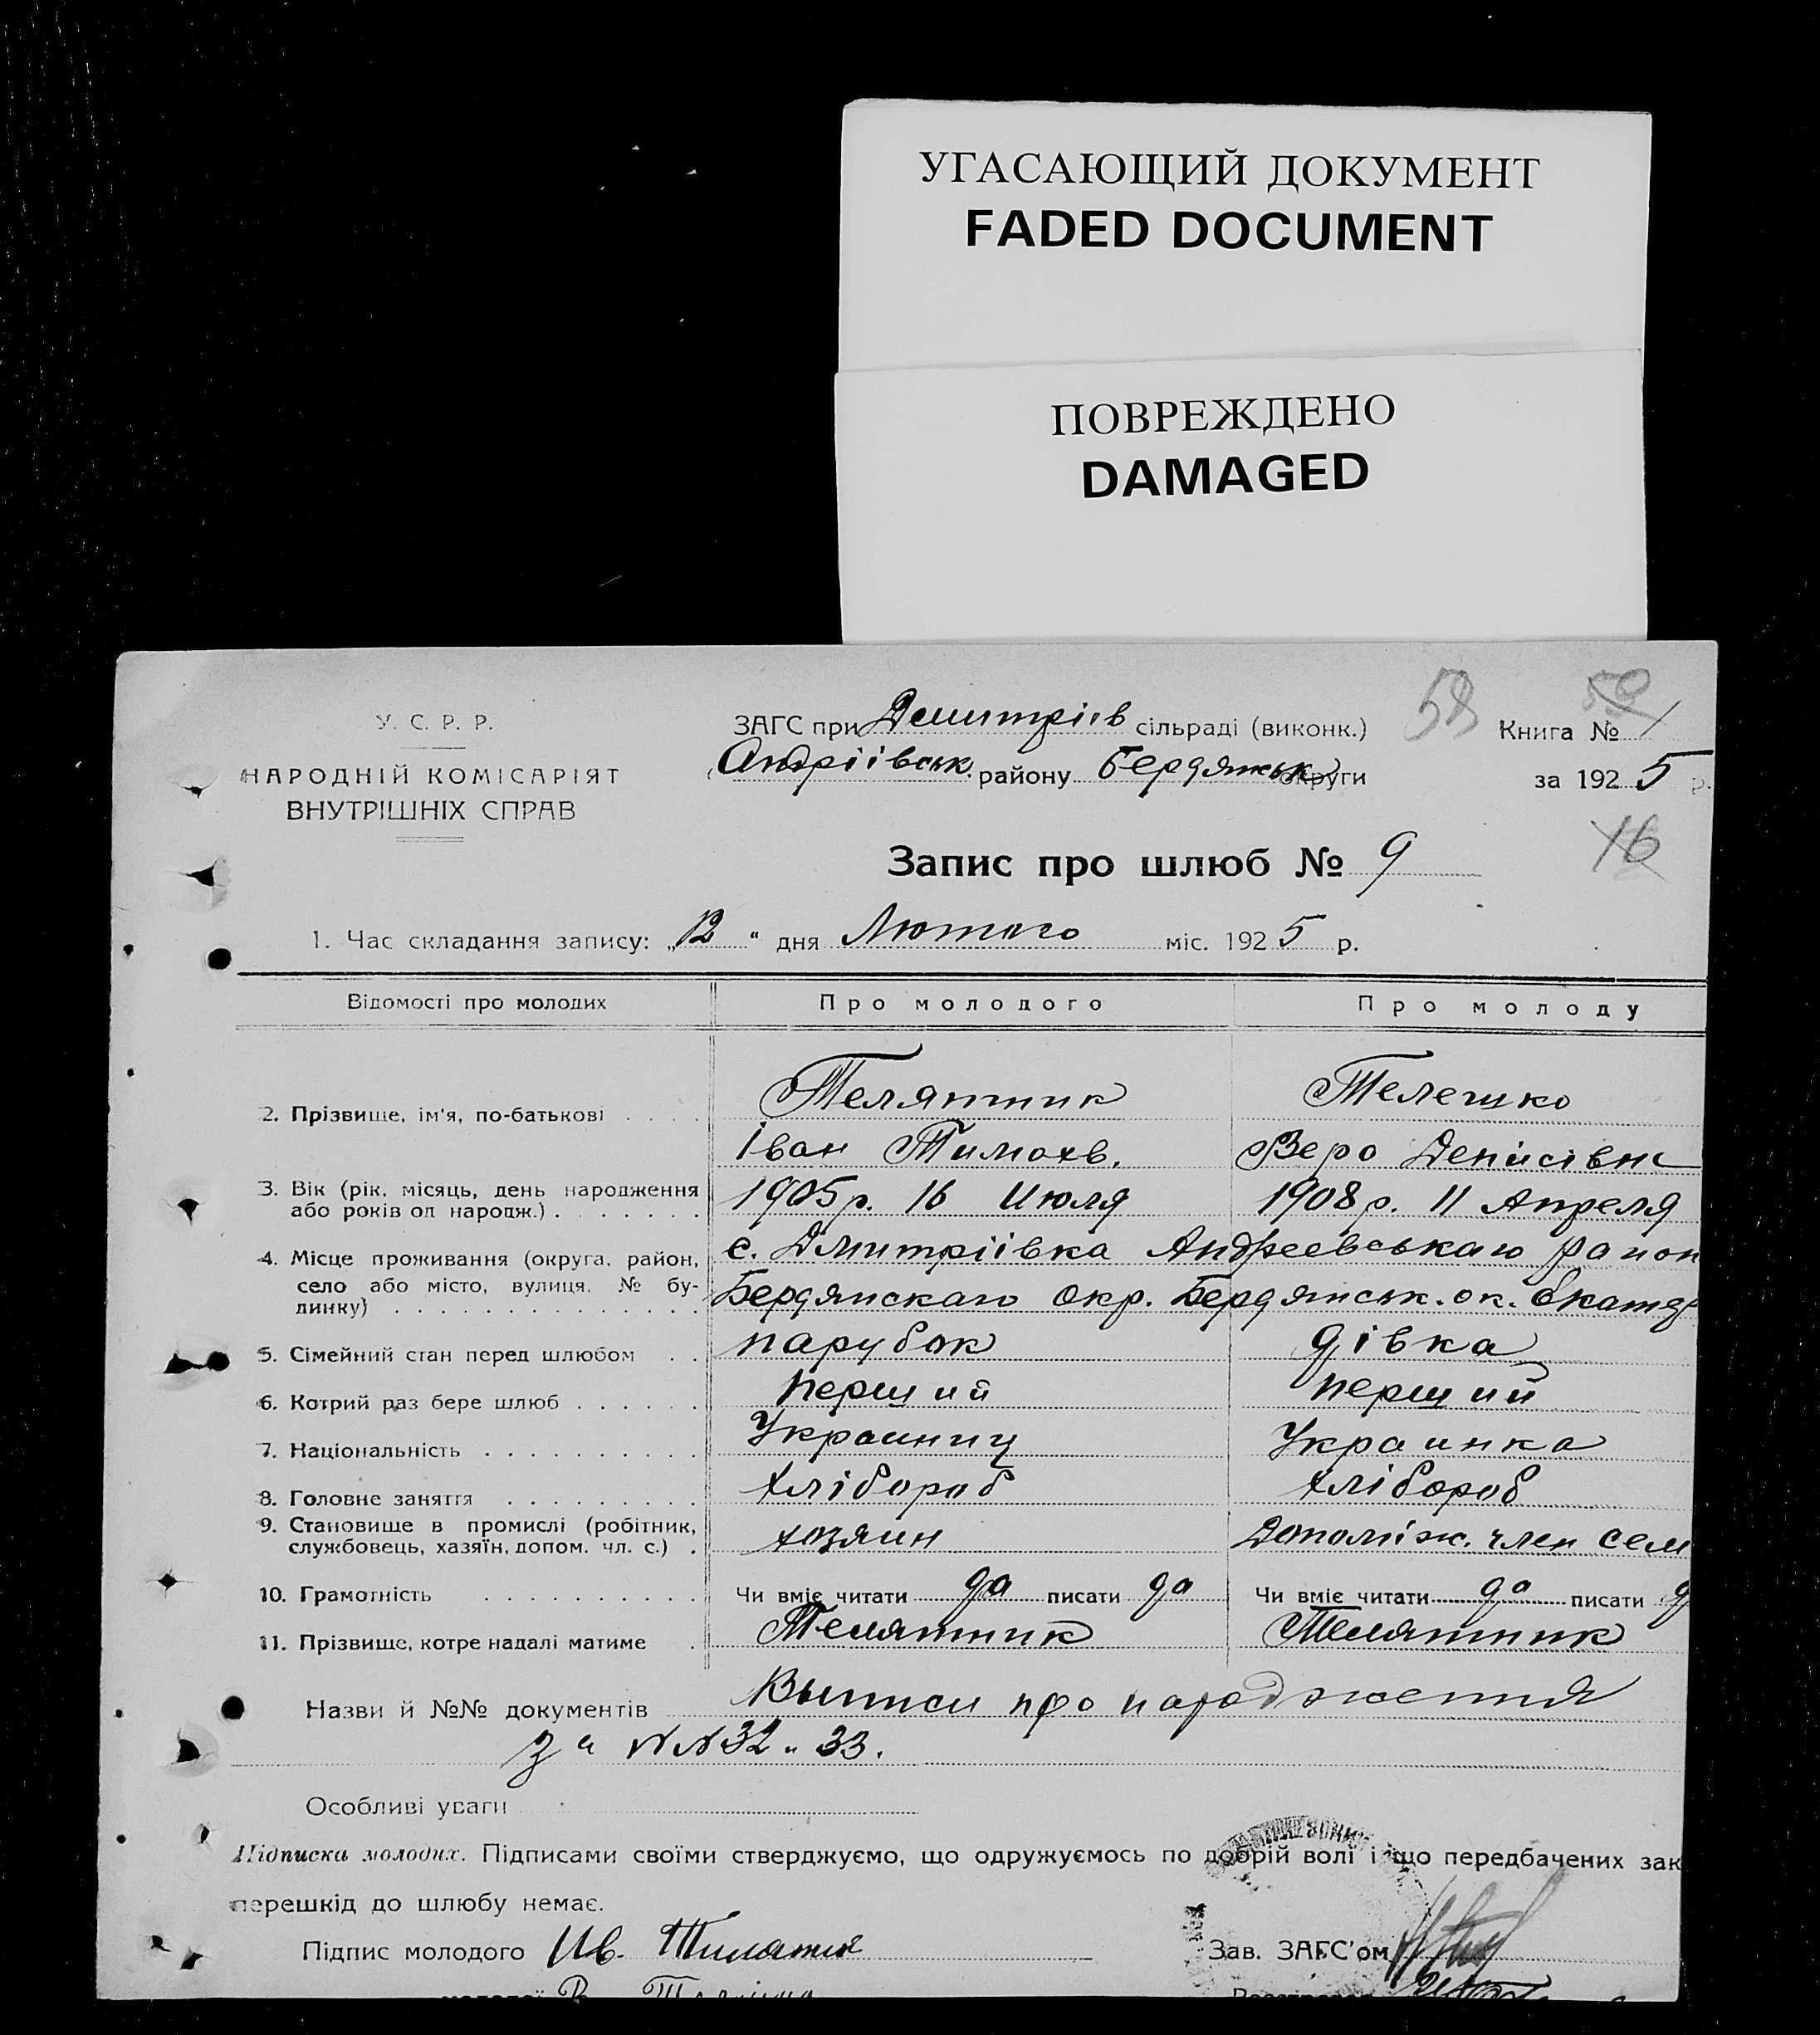 УГАСАЮЩИЙ ДОКУМЕНТ
FADED DOCUMENT
ПОВРЕЖДЕНО
DAMAGED
58 50
У. С. Р. Р.
НАРОДНІЙ КОМІСАРІЯТ
ВНУТРІШНІХ СПРАВ
ЗАГС при Дмитріів сільраді (виконк.) Книга № 1
Андріівськ. району Бердянськ округи за 1925 р.
16
Запис про шлюб № 9
1. Час складання запису: „12" дня Лютого міс. 1925 р.
Відомості про молодих Про молодого Про молоду
2. Прізвище, ім'я, по-батькові Телятник Телешко
Іван Тимохв. Вера Денисівн
3. Вік (рік, місяць, день народження або років од народж.) 1905 р. 16 Июля 1908 р. 11 Апреля
4. Місце проживання (округа, район, с. Дмитріівка Андреевськаго район
село або місто, вулиця, № будинку) Бердянскаго окр. Бердянськ. ок. Екатер
5. Сімейний стан перед шлюбом парубок дівка
6. Котрий раз бере шлюб перший перший
7. Національність Украиниц Украинка
8. Головне заняття хлібороб хлібороб
9. Становище в промислі (робітник, службовець, хазяїн, допом. чл. с.) хозяин Дополіж. член сем
10. Грамотність Чи вміє читати да писати да Чи вміє читати да писати д
11. Прізвище, котре надалі матиме Телятник Телятник
Назви й №№ документів Выписи про народження
за №№ 32 и 33.
Особливі уваги
Підписка молодих. Підписами своїми стверджуємо, що одружуємось по добрій волі і що передбачених зак
перешкід до шлюбу немає.
Підпис молодого Ив. Тилятник Зав. ЗАГС'ом
молодої В.